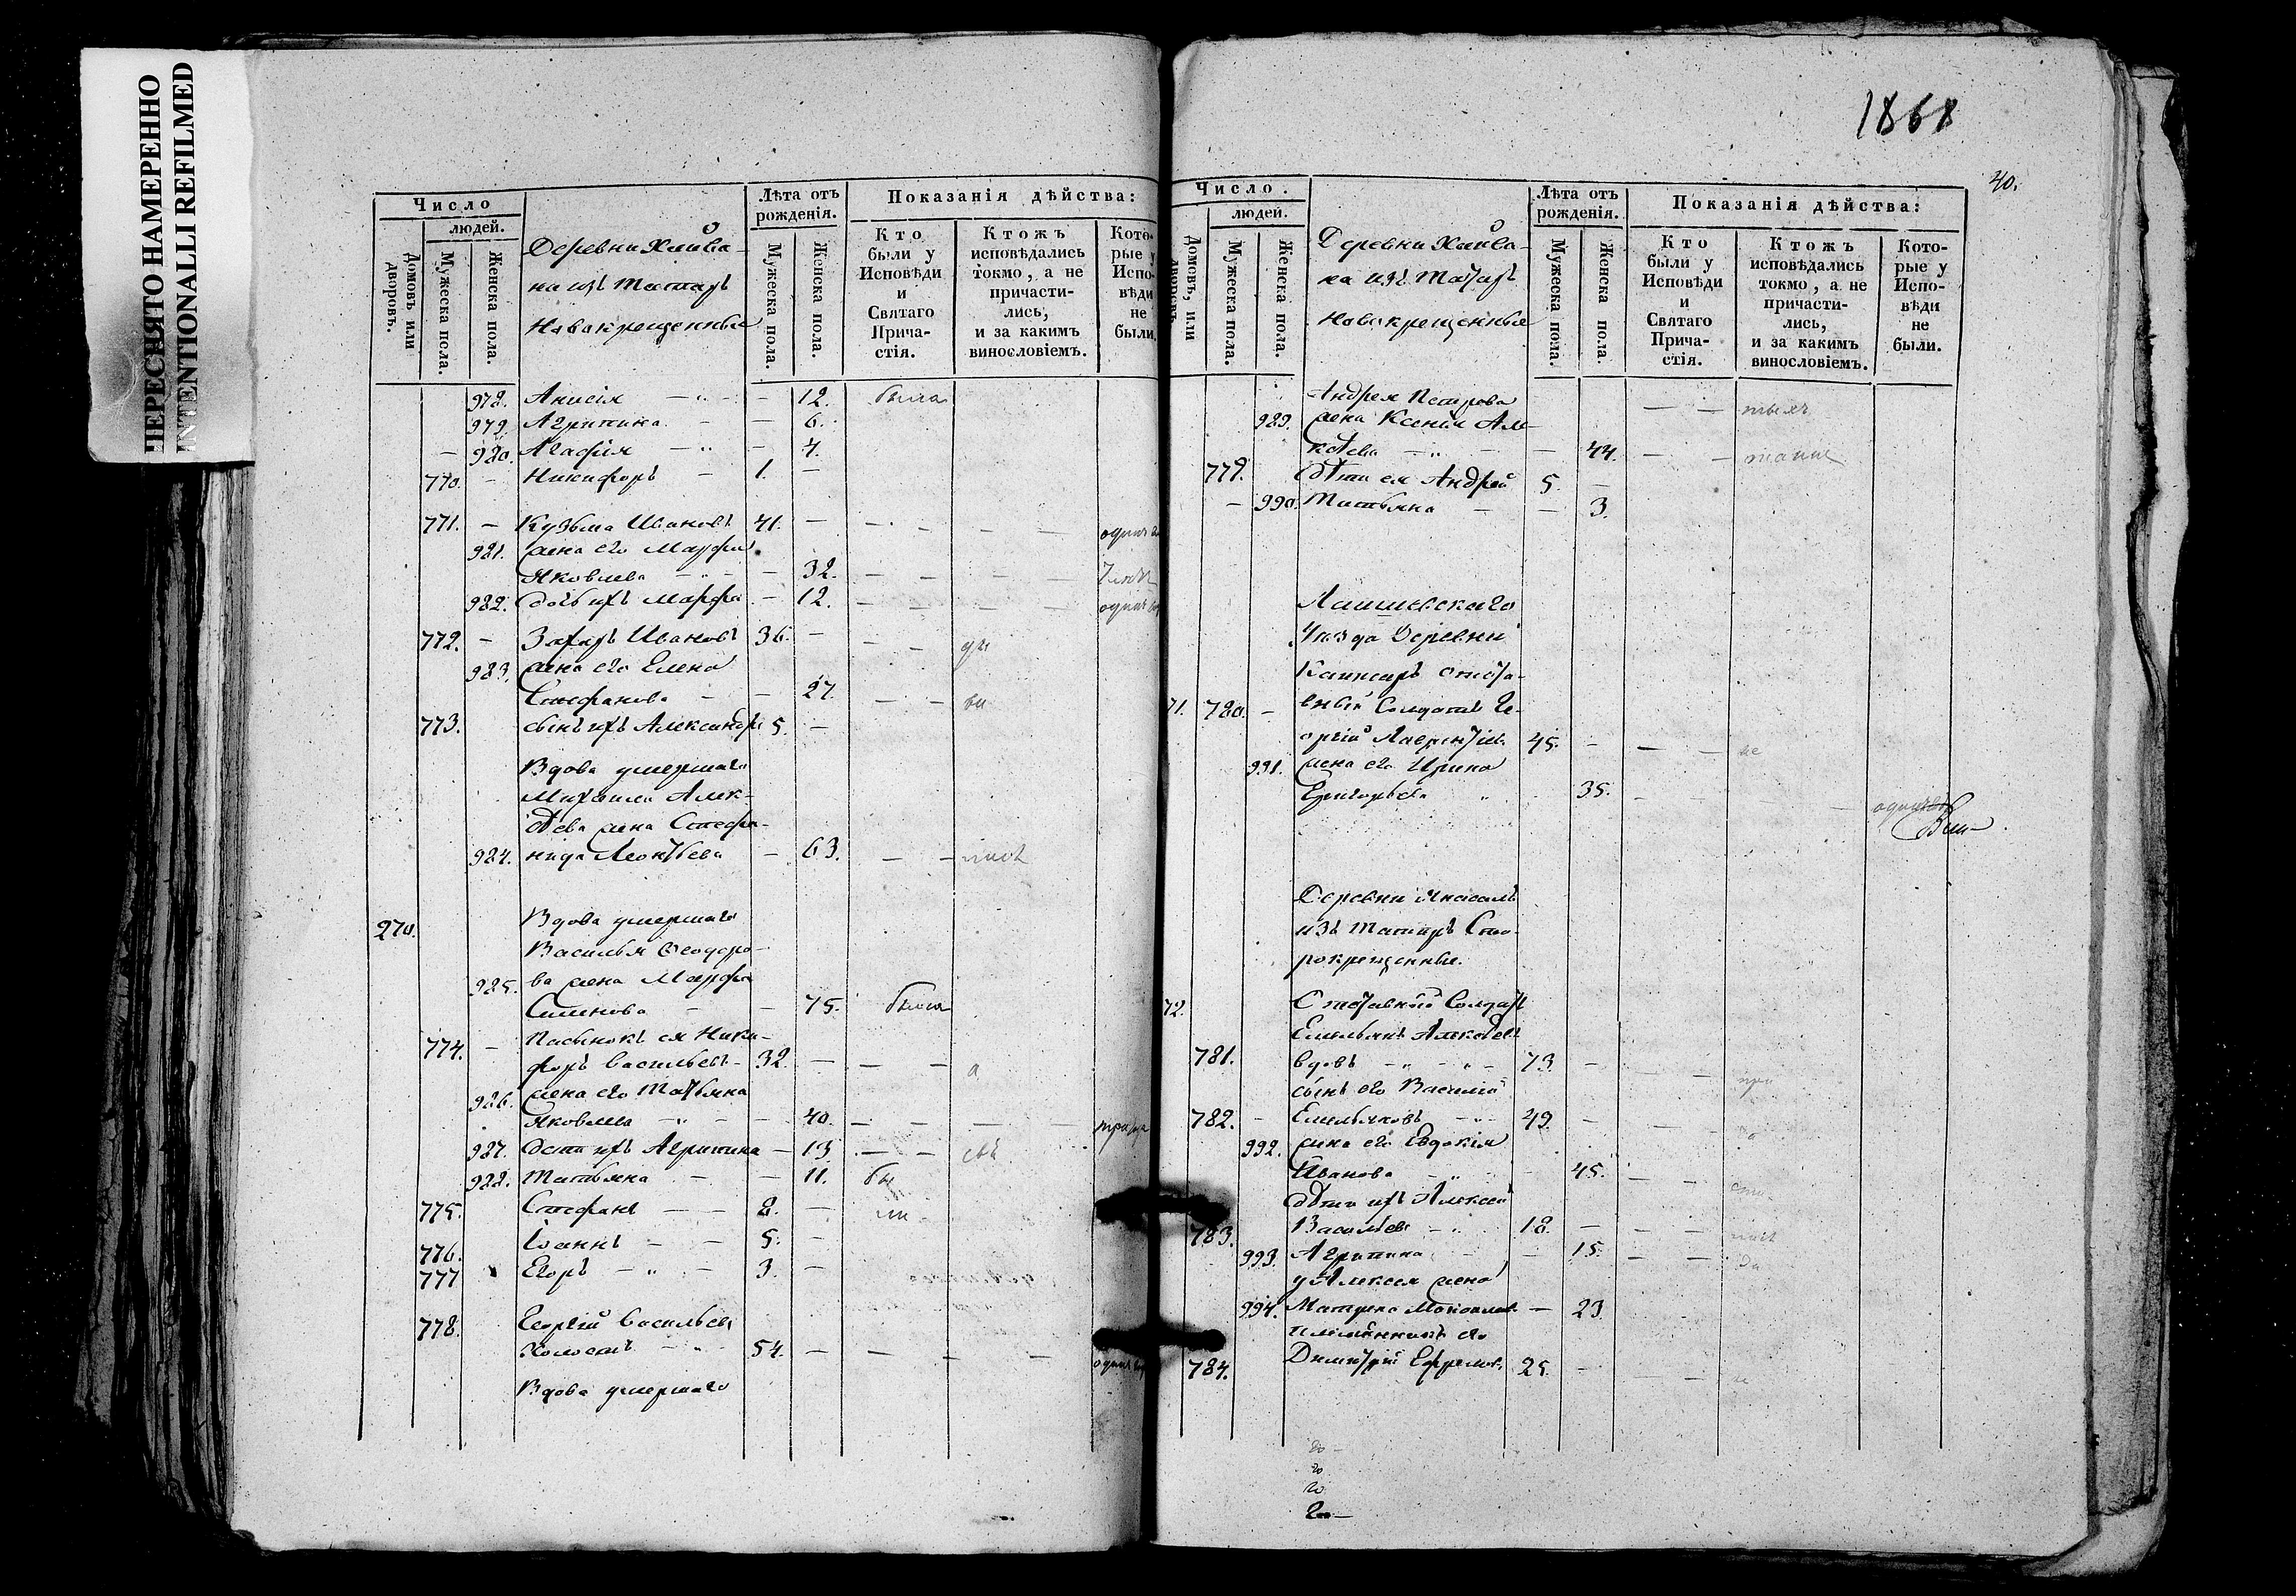 ПЕРЕСНЯТО НАМЕРЕННО
INTENTIONALLI REFILMED
Число
людей.
Домовъ или дворовъ.
Мужеска пола.
Женска пола.
Деревни
на изъ Татаръ
Новокрещенные
Лѣта отъ рожденія.
Мужеска пола.
Женска пола.
Показанія дѣйства:
Кто были у Исповѣди и Святаго Прича-стія.
Ктожъ исповѣдались токмо, а не причасти-лись, и за какимъ винословіемъ.
Кото-рые у Испо-вѣди не были.
978. Анисія — 12. была
979. Агрипина — 6.
980. Агафія — 4.
770. — Никифоръ — 1. —
771. — Кузьма Ивановъ 41. —
981. жена его Марфа
Яковлева — 32.
982. дочь ихъ Марфа — 12.
772. — Захаръ Ивановъ 36. —
983. жена его Елена
Стефанова — 27.
773. сынъ ихъ Александръ 5. —
Вдова умершаго
Михаила Алек-
сѣева жена Стефа-
984. нида Леонтьева — 63.
270. Вдова умершаго
Василья Ѳеодоро-
985. ва жена Марфа
Семенова — 75. была
774. — Пасынокъ ея Ники-
форъ Васильевъ 32. —
986. жена его Татьяна
Яковлева — 40.
987. дѣти ихъ Агрипина — 13
988. Татьяна — 11. бы
775. Стефанъ — 8. — ли
776. Іоаннъ — 5. —
777 Егоръ — 3. —
778. Георгій Васильевъ
Холостъ — 54. —
Вдова умершаго
1868
40.
Число.
людей.
Домовъ, или дворовъ.
Мужеска пола.
Женска пола.
Деревни
на изъ Татаръ
Новокрещенные
Лѣта отъ рожденія.
Мужеска пола.
Женска пола.
Показанія дѣйства:
Кто были у Исповѣди и Святаго Прича-стія.
Ктожъ исповѣдались токмо, а не причасти-лись, и за какимъ винословіемъ.
Кото-рые у Испо-вѣди не были.
Андрея Петрова
989. жена Ксенія Але-
ксѣева — 44.
779. Дѣти ея Андрей 5. —
— 990. Татьяна — 3.
Лаишевскаго
Уѣзда Деревни
отста-
71. 780. — вный Солдатъ Ге-
оргій Лаврентьевъ 45. — не
991. жена его Ирина
Григорьева 35.
Деревни
изъ Татаръ Ста-
рокрещенные.
72. Отставный Солдатъ
Емельянъ Алексѣевъ
781. вдовъ — 73. —
сынъ его Василій
782. — Емельяновъ 49. —
992. жена его Евдокія
Иванова 45.
дѣти ихъ Алексей
783. Васильевъ 18. —
993. Агрипина — 15.
у Алексея жена
994. Матрена — 23
племянникъ его
784. Димитрій Ефремовъ 25. —
20 —
20
20
200 —